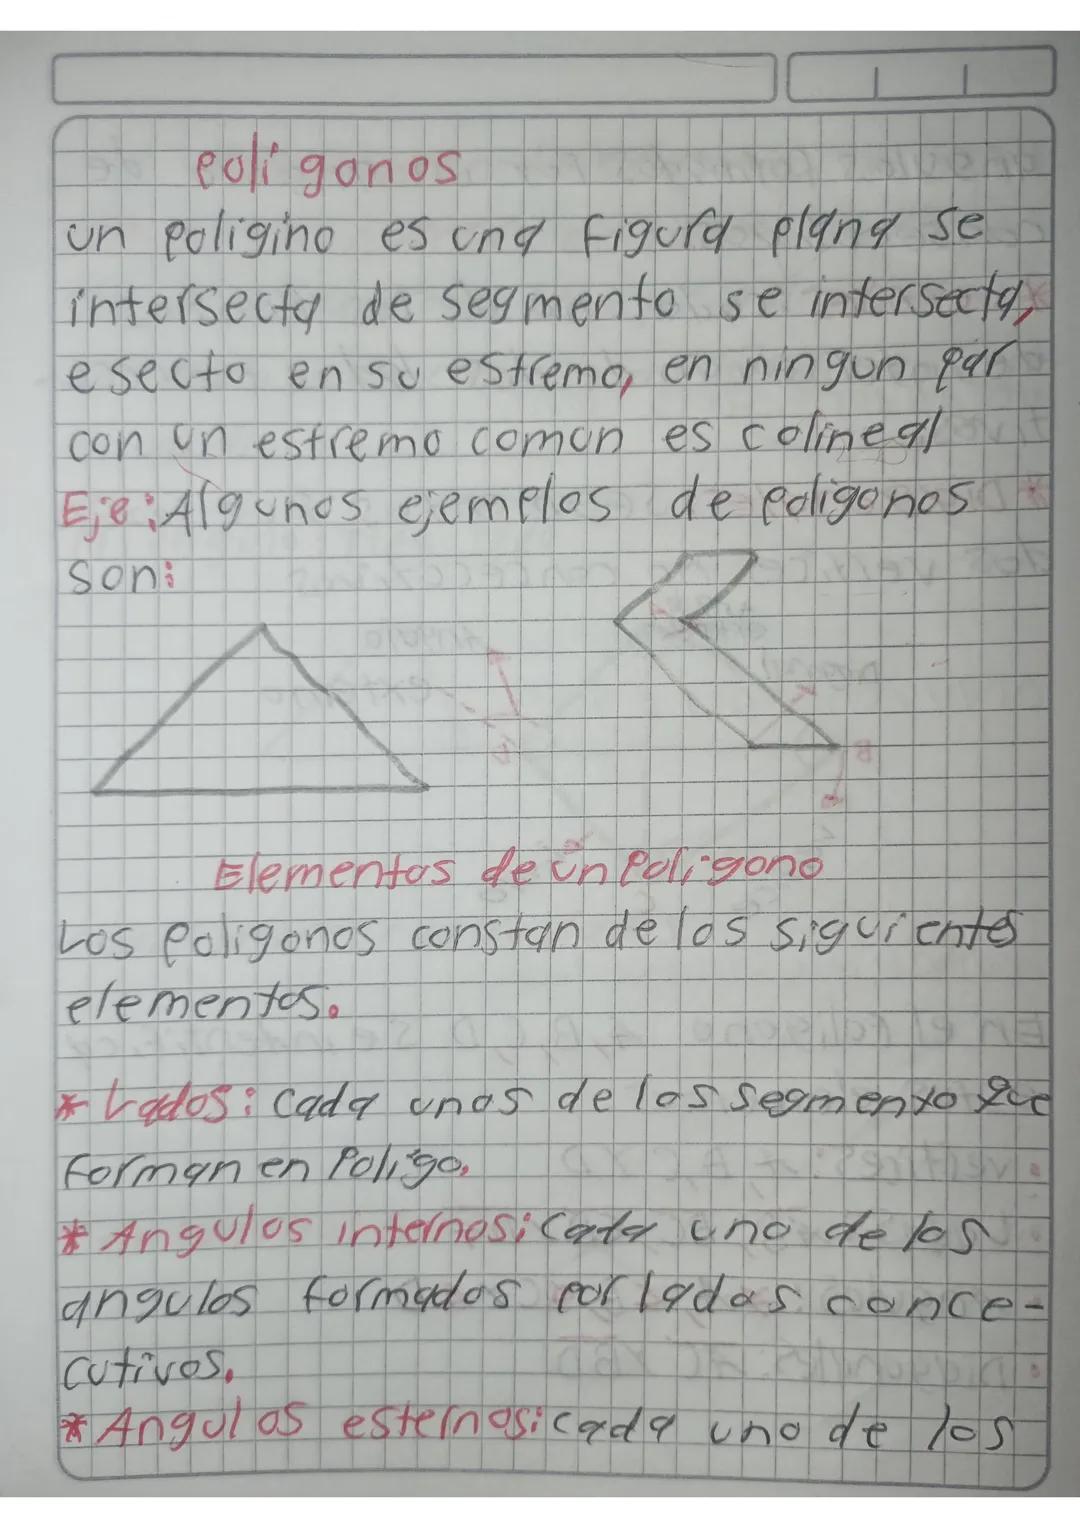 Polígonos
un poligino es una figura plana se
intersecta de segmento se intersecta,
esecto en su estremo, en ningun par
con un estremo comun es colineal
Eje: Algunos ejemplos de poligonos
son:
Elementos de un Polígono
Los poligonos constan de los siguientes
elementos.
* Lados: cada unos de los segmento que
forman en Polígo.
* Angulos internos: Cada uno de los
angulos formados por lados conce-
cutivos.
* Angulos esternos: cada uno de los